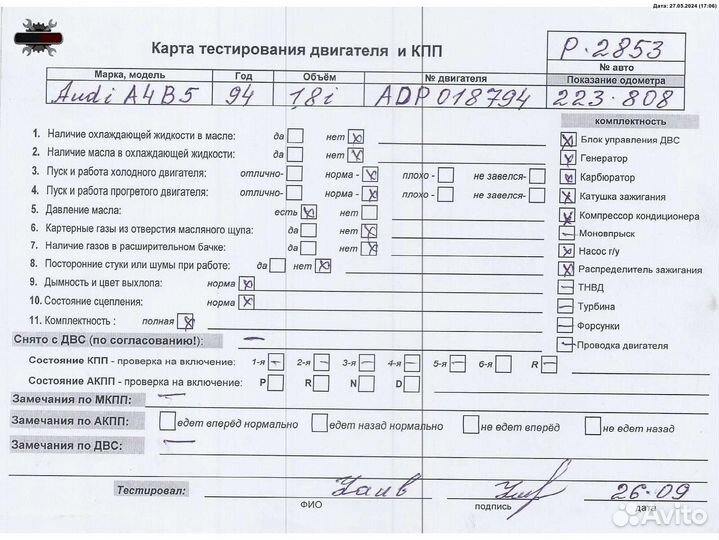 Дата: 27.05.2024 (17:06)
Карта тестирования двигателя и КПП
Р·2853
№ авто
Марка, модель Год Объём № двигателя Показание одометра
Audi A4 B5 94 1,8i ADP 018794 223·808
комплектность
1. Наличие охлаждающей жидкости в масле: да нет
2. Наличие масла в охлаждающей жидкости: да нет
3. Пуск и работа холодного двигателя: отлично- норма - плохо - не завелся-
4. Пуск и работа прогретого двигателя: отлично- норма - плохо - не завелся-
5. Давление масла: есть нет
6. Картерные газы из отверстия масляного щупа: да нет
7. Наличие газов в расширительном бачке: да нет
8. Посторонние стуки или шумы при работе: да нет
9. Дымность и цвет выхлопа: норма
10. Состояние сцепления: норма
11. Комплектность : полная
Блок управления ДВС
Генератор
Карбюратор
Катушка зажигания
Компрессор кондиционера
Моновпрыск
Насос г/у
Распределитель зажигания
ТНВД
Турбина
Форсунки
Проводка двигателя
Снято с ДВС (по согласованию!): –
Состояние КПП - проверка на включение: 1-я 2-я 3-я 4-я 5-я 6-я R
Состояние АКПП - проверка на включение: P R N D
Замечания по МКПП: –
Замечания по АКПП: едет вперёд нормально едет назад нормально не едет вперёд не едет назад
Замечания по ДВС: –
Тестировал: 26·09
ФИО подпись дата
Avito